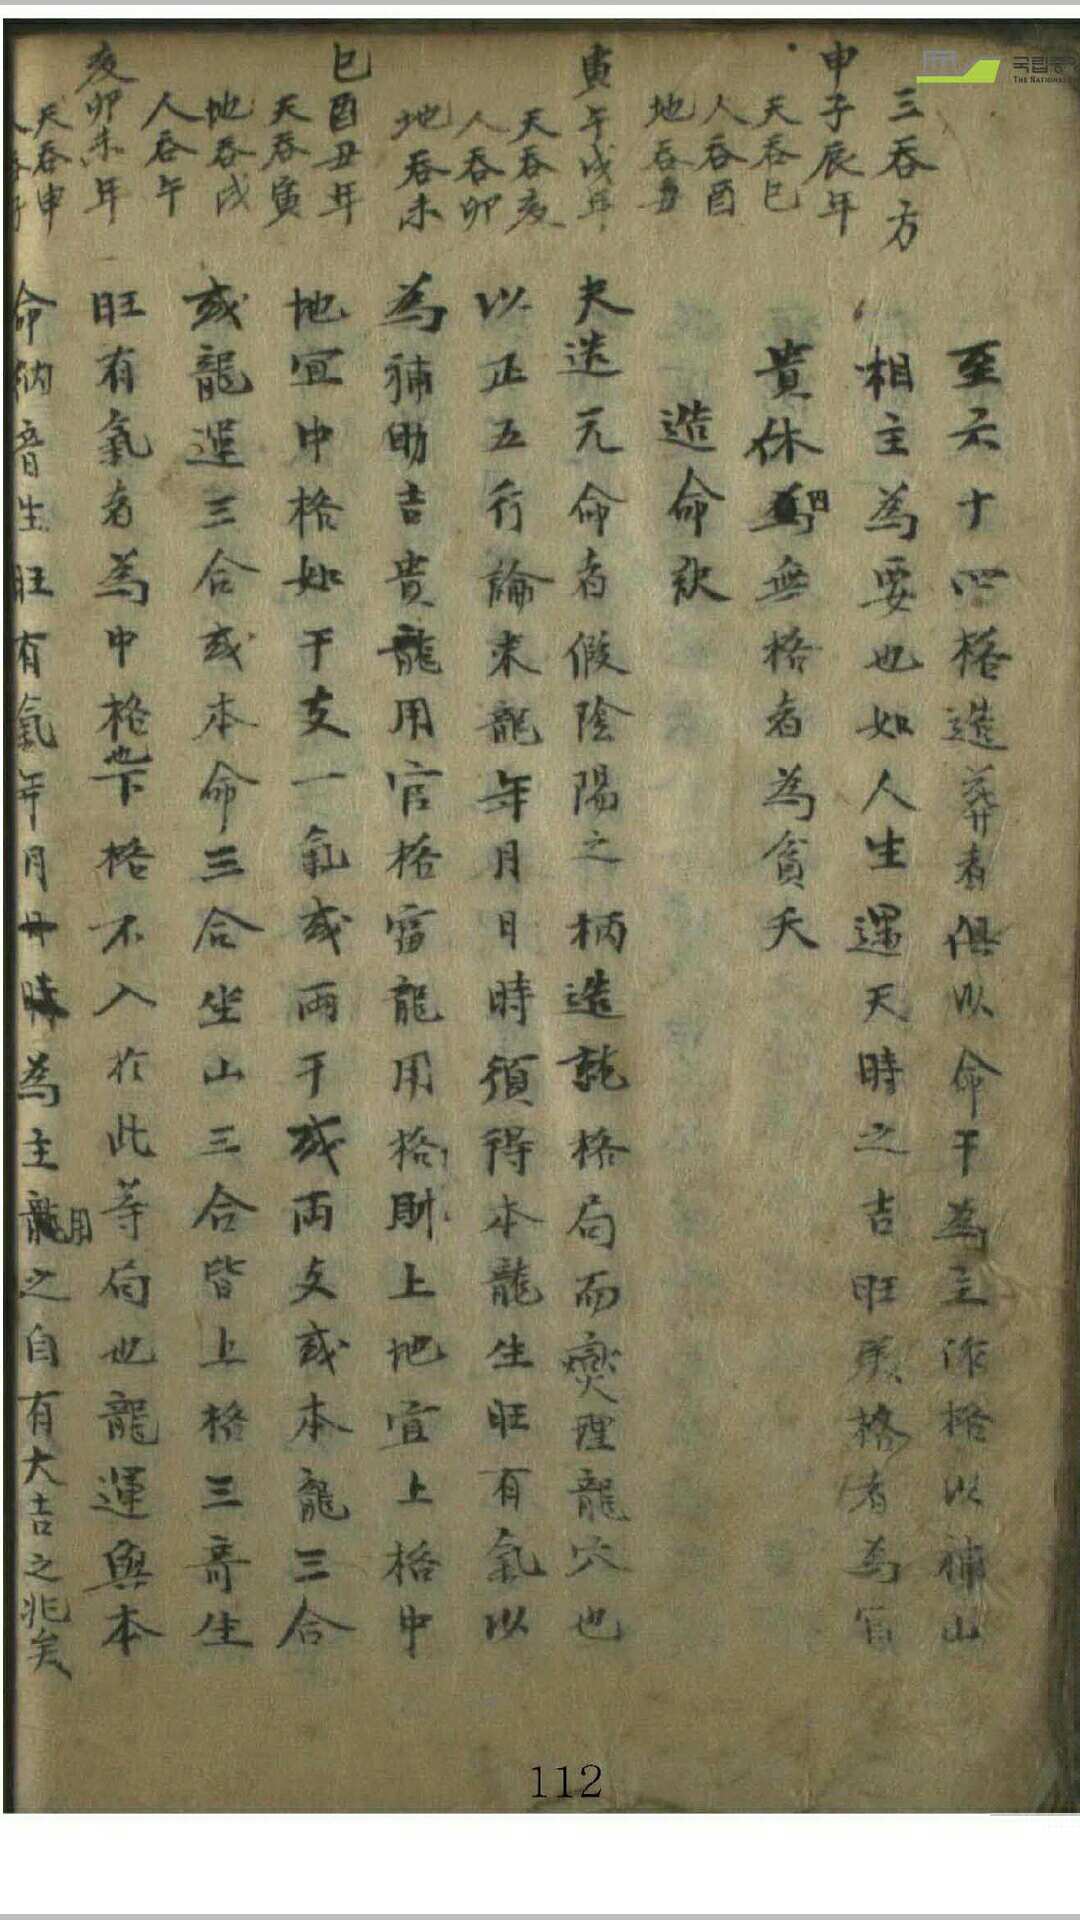 三吞方
申子辰年
天吞巳
人吞酉
地吞丑
寅午戌年
天吞亥
人吞卯
地吞未
巳酉丑年
天吞寅
地吞戌
人吞午
亥卯未年
天吞申
至六十四格造葬者俱以命干為主作格以補山
相主為要也如人生遇天時之吉旺美格者為官
貴休囚無格者為貧夭
造命訣
夫造元命者假陰陽之柄造就格局而燮理龍穴也
以正五行論來龍年月日時須得本龍生旺有氣以
為補助吉貴龍用官格富龍用格財上地宜上格中
地宜中格如干支一氣或兩干或兩支或本龍三合
或龍運三合或本命三合坐山三合皆上格三奇生
旺有氣者為中格也下格不入於此等局也龍運與本
命納音生旺有氣年月日時為主龍用之自有大吉之兆矣
국립중앙
THE NATIONAL
112